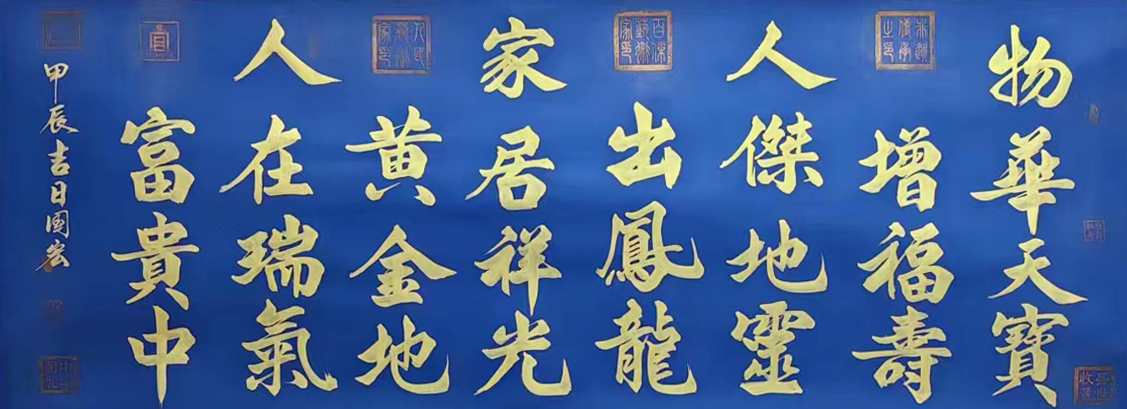 物華天寶
增福壽
人傑地靈
出鳳龍
家居祥光
黄金地
人在瑞氣
富貴中
甲辰吉日國宏